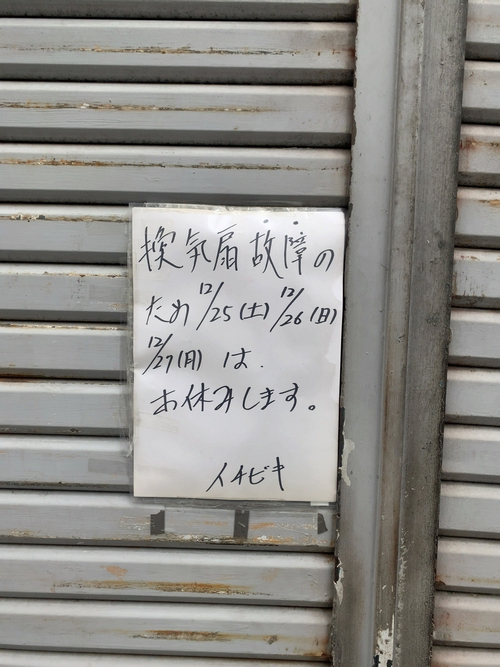 換気扇故障の
ため12/25(土)12/26(日)
12/27(月)は、
お休みします。
イチビキ